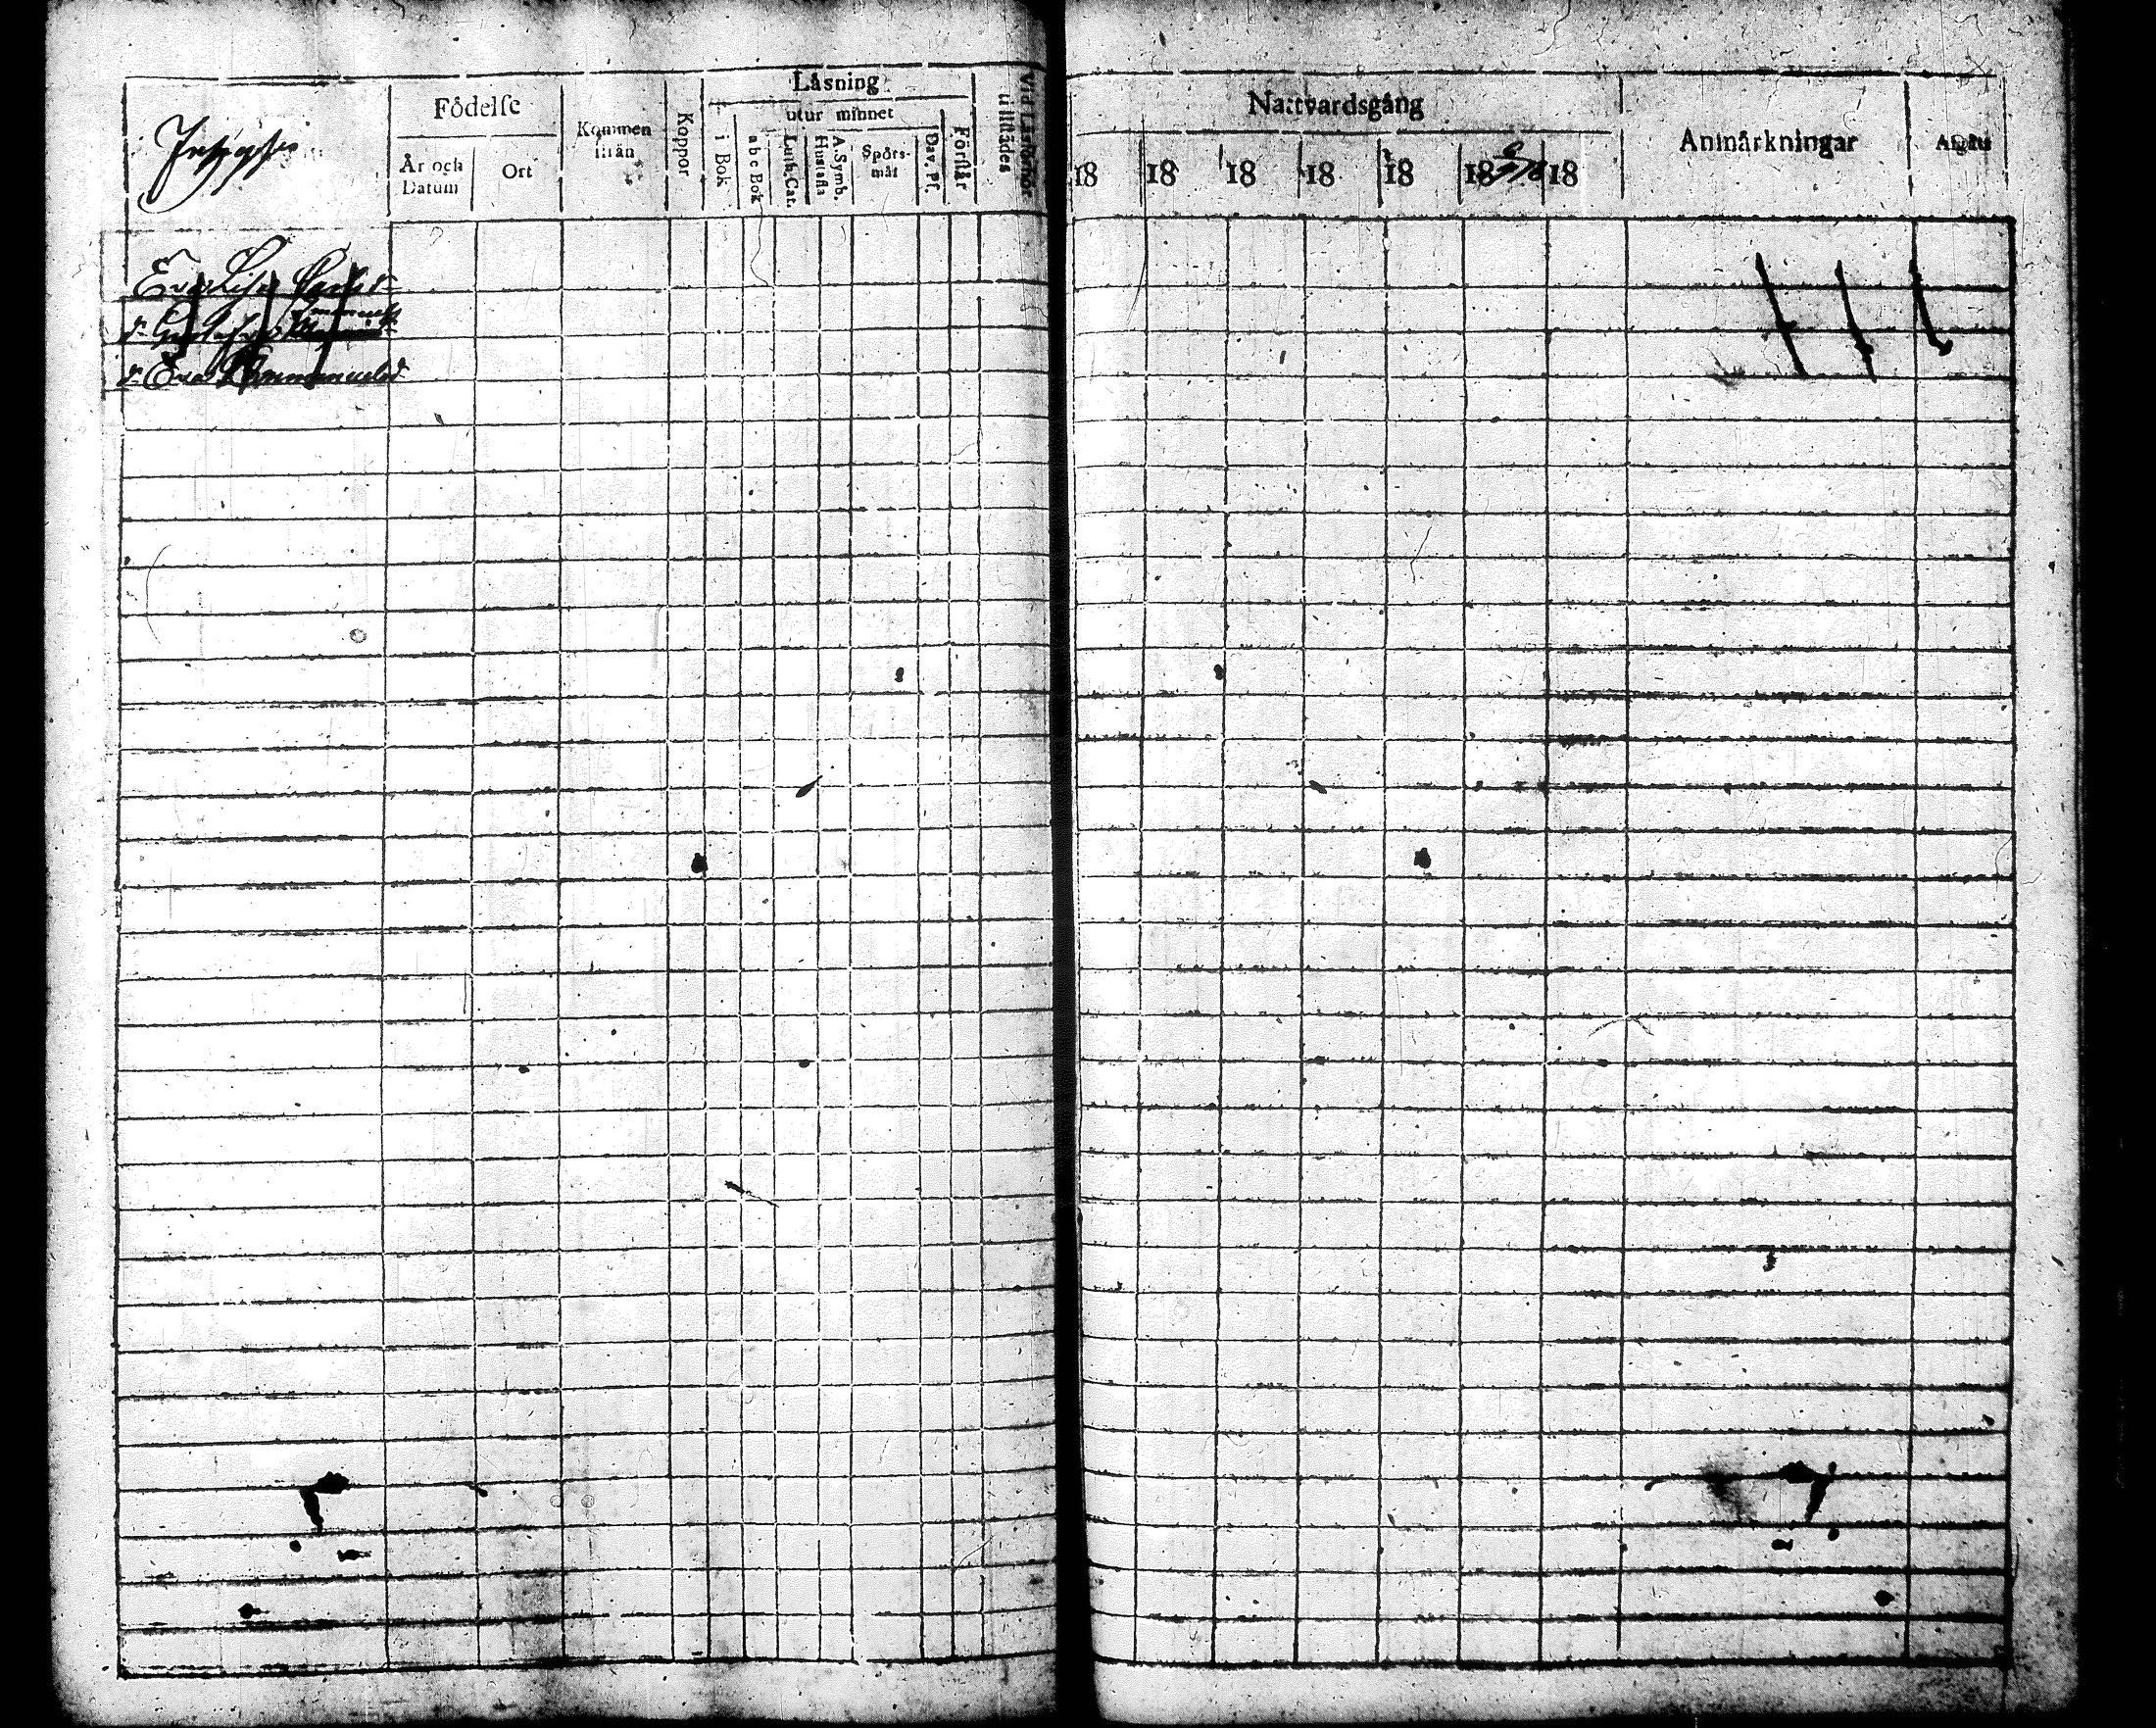 Födelſe
År och Datum
Ort
Kommen ifrån
Koppor
Läsning
i Bok
utur minnet
a b c Bok
Luth. Cat.
Huſtafla
A. Symb.
Spörs-
mål
Dav. Pſ.
Förſtår
Vid Läsförhör
tillſtädes
Nattvardsgång
18 18 18 18 18 18 18
Anmärkningar
Afgått
Eva Lisa
Eva